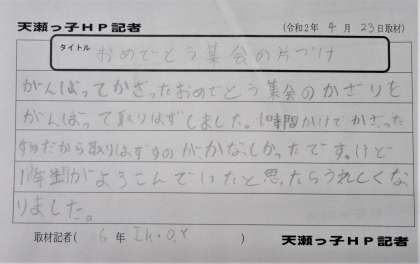 天瀬っ子HP記者 (令和2年 4月 23日取材)
タイトル おめでとう集会の片づけ
がんばってかざったおめでとう集会のかざりを
がんばって取りはずしました。1時間かけてかざった
だから取りはずすのがかなしかったです。けど
1年生がよろこんでいたと思ったらうれしくな
りました。
取材記者( 6年 I.K・O.Y ) 天瀬っ子HP記者